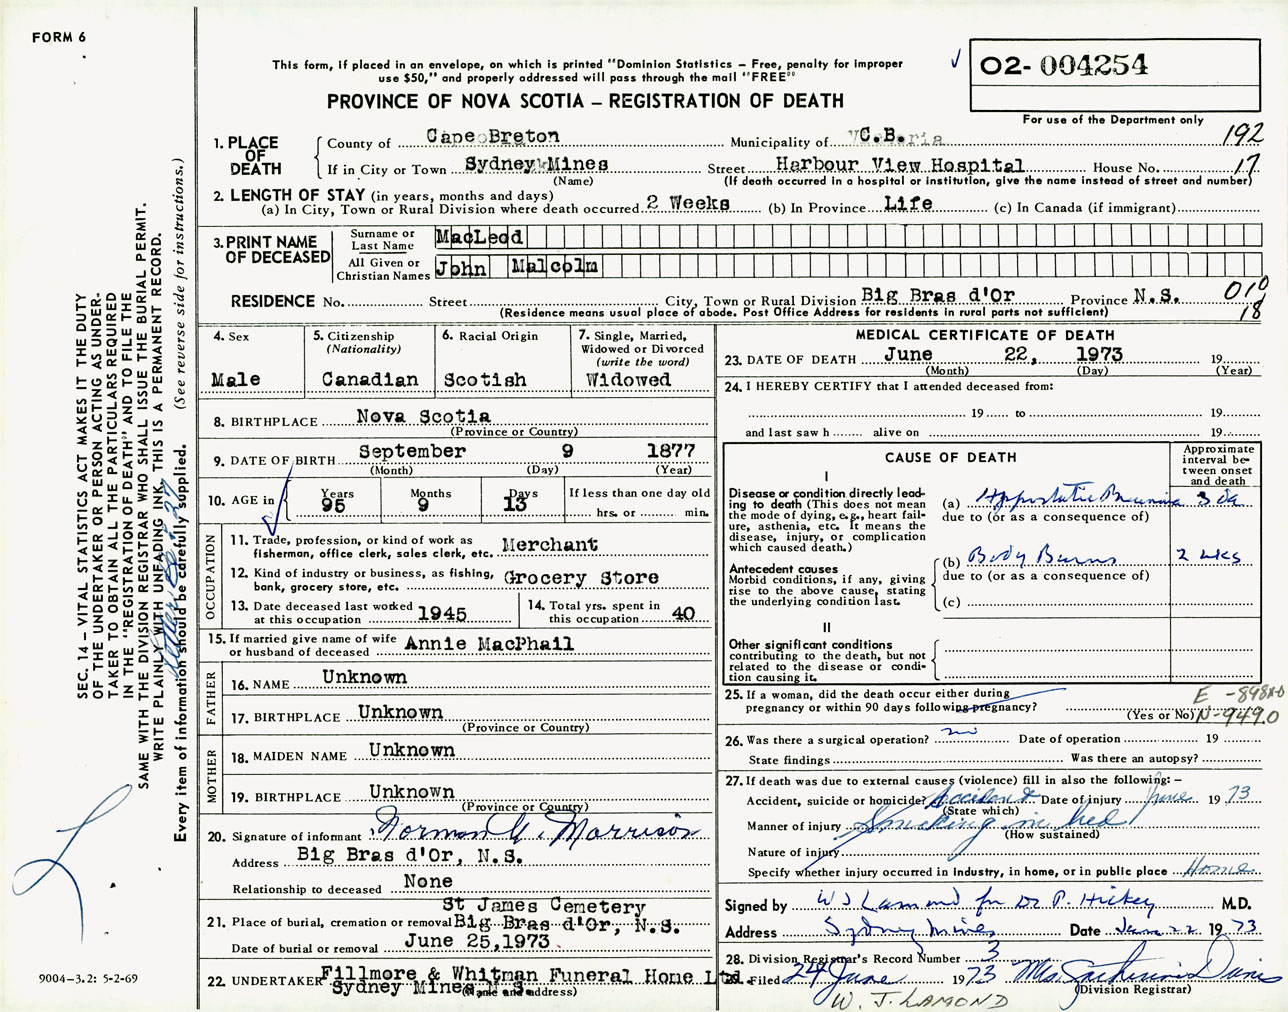 FORM 6
This form, if placed in an envelope, on which is printed "Dominion Statistics – Free, penalty for improper
use $50," and properly addressed will pass through the mail "FREE"
PROVINCE OF NOVA SCOTIA – REGISTRATION OF DEATH
02- 004254
For use of the Department only
192
17
1. PLACE OF DEATH
County of Cape Breton Municipality of C.B.
If in City or Town Sydney Mines Street Harbour View Hospital House No.
(Name) (If death occurred in a hospital or institution, give the name instead of street and number)
2. LENGTH OF STAY (in years, months and days)
(a) In City, Town or Rural Division where death occurred 2 Weeks (b) In Province Life (c) In Canada (if immigrant)
3. PRINT NAME OF DECEASED
Surname or Last Name MacLeod
All Given or Christian Names John Malcolm
RESIDENCE No. Street City, Town or Rural Division Big Bras d'Or Province N.S.
010
18
(Residence means usual place of abode. Post Office Address for residents in rural parts not sufficient)
4. Sex
Male
5. Citizenship (Nationality)
Canadian
6. Racial Origin
Scotish
7. Single, Married, Widowed or Divorced (write the word)
Widowed
8. BIRTHPLACE Nova Scotia
(Province or Country)
9. DATE OF BIRTH September 9 1877
(Month) (Day) (Year)
10. AGE in Years Months Days If less than one day old
95 9 13 hrs. or min.
OCCUPATION
11. Trade, profession, or kind of work as
fisherman, office clerk, sales clerk, etc. Merchant
12. Kind of industry or business, as fishing,
bank, grocery store, etc. Grocery Store
13. Date deceased last worked
at this occupation 1945
14. Total yrs. spent in
this occupation 40
15. If married give name of wife
or husband of deceased Annie MacPhail
FATHER
16. NAME Unknown
17. BIRTHPLACE Unknown
(Province or Country)
MOTHER
18. MAIDEN NAME Unknown
19. BIRTHPLACE Unknown
(Province or Country)
20. Signature of informant Norman G. Morrison
Address Big Bras d'Or, N.S.
Relationship to deceased None
St James Cemetery
21. Place of burial, cremation or removal Big Bras d'Or, N.S.
Date of burial or removal June 25,1973
22. UNDERTAKER Fillmore & Whitman Funeral Home Ltd.
Sydney Mines N.S.
(Name and address)
MEDICAL CERTIFICATE OF DEATH
23. DATE OF DEATH June 22, 1973 19
(Month) (Day) (Year)
24. I HEREBY CERTIFY that I attended deceased from:
19 to 19
and last saw h alive on 19
CAUSE OF DEATH
Approximate interval between onset and death
I
Disease or condition directly leading to death (This does not mean the mode of dying, e.g., heart failure, asthenia, etc. It means the disease, injury, or complication which caused death.)
(a) 3 da
due to (or as a consequence of)
Antecedent causes
Morbid conditions, if any, giving rise to the above cause, stating the underlying condition last.
(b) Body Burns 2 wks
due to (or as a consequence of)
(c)
II
Other significant conditions
contributing to the death, but not related to the disease or condition causing it.
25. If a woman, did the death occur either during
pregnancy or within 90 days following pregnancy?
(Yes or No)
N-949.0
26. Was there a surgical operation? no Date of operation 19
State findings Was there an autopsy?
27. If death was due to external causes (violence) fill in also the following:–
Accident, suicide or homicide? Accident Date of injury June 19 73
(State which)
Manner of injury Smoking in bed
(How sustained)
Nature of injury
Specify whether injury occurred in industry, in home, or in public place Home
Signed by W J Lamond for Dr P. Hickey M.D.
Address Sydney Mines Date June 22 19 73
28. Division Registrar's Record Number 3
29. Filed 24 June 19 73 Mrs Catherine Davis
(Division Registrar)
W. J. LAMOND
SEC. 14 – VITAL STATISTICS ACT MAKES IT THE DUTY
OF THE UNDERTAKER OR PERSON ACTING AS UNDER-
TAKER TO OBTAIN ALL THE PARTICULARS REQUIRED
IN THE "REGISTRATION OF DEATH" AND TO FILE THE
SAME WITH THE DIVISION REGISTRAR WHO SHALL ISSUE THE BURIAL PERMIT.
WRITE PLAINLY WITH UNFADING INK. THIS IS A PERMANENT RECORD.
Every item of information should be carefully supplied. (See reverse side for instructions.)
9004–3.2: 5-2-69